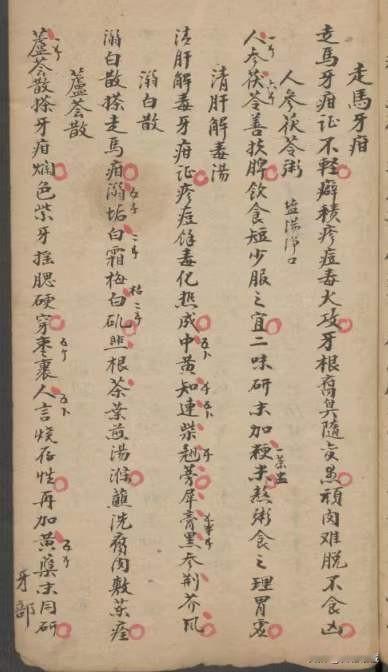 走馬牙疳
走馬牙疳証不輕癖積疹痘毒火攻牙根腐臭隨変黑頑肉难脱不食凶
人參茯苓粥 盐湯淨口
人參茯苓善扶脾飲食短少服之宜二味研末加粳米熬粥食之理胃虚
一茶盅
清肝解毒湯
清肝解毒牙疳証疹痘餘毒化热成中黄知連柴翹蒡犀膏黑參荆芥风
溺白散
溺白散搽走馬疳溺垢白霜梅白矾韭根茶葉煎湯滌蘸洗腐肉敷藥痊
蘆薈散
蘆薈散搽牙疳爛色紫牙摇腮硬穿枣裹人言烧存性再加黄蘗末同研
牙部